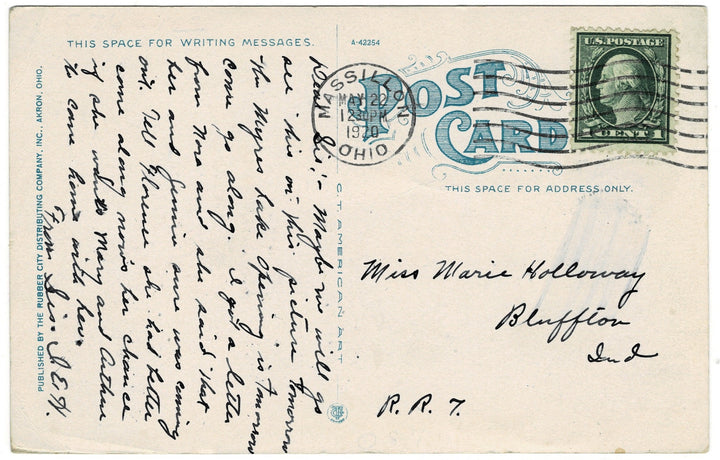 THIS SPACE FOR WRITING MESSAGES.
A-42254
POST
CARD
U.S. POSTAGE
1 CENT 1
MASSILLON
MAY 22
12 30 PM
1920
OHIO
THIS SPACE FOR ADDRESS ONLY.
Dear Sis:- Maybe we will go
see this on this picture tomorrow
the Myres Lake Opening is tomorrow
come go along. I got a letter
from Nora and she said that
her and Jennie sure was coming
out. Tell Florence she had better
come along now's her chance
if she wants Mary and Arthur
to come home with her.
From Sis. I.E.H.
Miss Marie Holloway
Bluffton
Ind
R.R.7.
PUBLISHED BY THE RUBBER CITY DISTRIBUTING COMPANY, INC., AKRON, OHIO.
C.T. AMERICAN ART